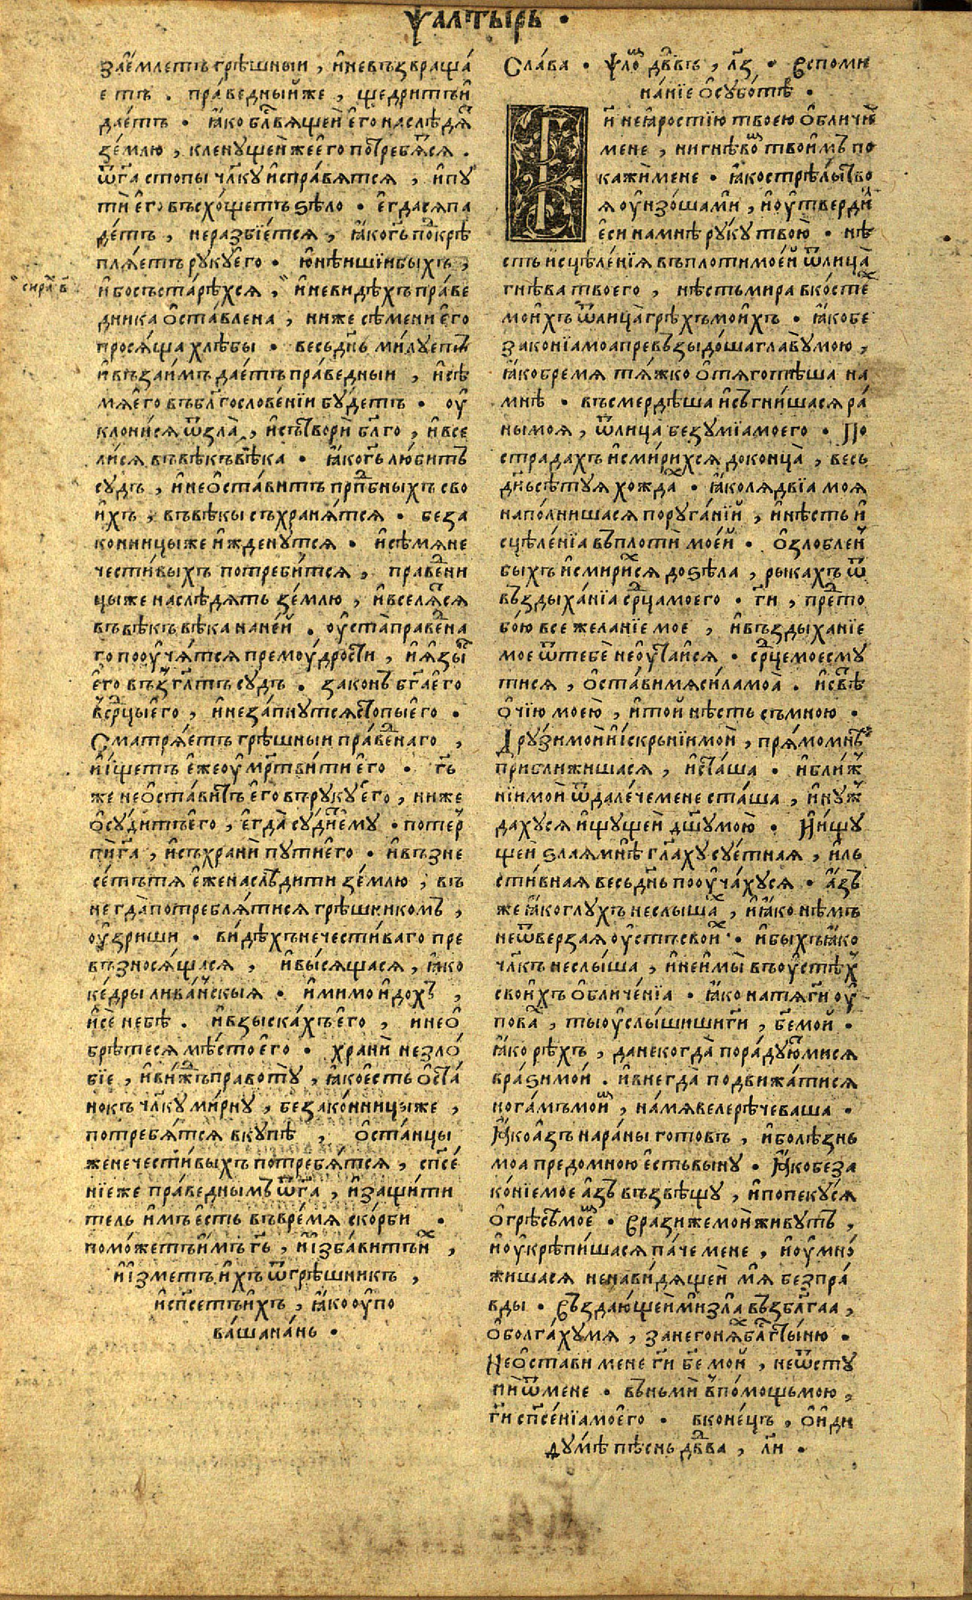 Ѱалтырь .
заемлетъ грѣшныи , и невъзвраща
етъ . праведный же , щедритъ и
даетъ . ꙗко бл҃вѧщеи его наслѣдѧ
землю , кленꙋщеи же его потребѧсѧ .
ѿ г҃а стопы чл҃кꙋ исправѧтсѧ , и пꙋ
ти его въсхощетъ ѕѣло . егда сѧ па
детъ , неразбіетсѧ , ꙗко г҃ь покрѣ
плѧетъ рꙋкꙋ его . юнѣишіи быхъ ,
ибо състарѣхсѧ , и невидѣхъ праве
дника оставлена , ниже сѣмени его
просѧща хлѣбы . весь дн҃ь милꙋетъ
и въ заимъ даетъ праведныи , и сѣ
мѧ его въ блг҃ословеніи бꙋдетъ . оу
клонисѧ ѿ зла , и сътвори бл҃го , и все
лисѧ въ вѣкъ вѣка . ꙗко г҃ь любитъ
сꙋдъ , и неоставитъ прп҃бныхъ сво
ихъ , въ вѣкы съхранѧтсѧ . беза
конницы же ижденꙋтсѧ . и сѣмѧ не
честивыхъ потребитсѧ , праведни
цы же наслѣдѧтъ землю , и вселѧсѧ
въ вѣкъ вѣка на ней . оуста праведна
го пооучѧтсѧ премоудрости , и ѧзы
его възгл҃тъ сꙋдъ . законъ бг҃а его
в ср҃цы его , и незапнꙋтсѧ стопы его .
Сматрѧетъ грѣшныи праведнаго ,
и ищетъ еже оумртвити его . г҃ь
же неоставитъ его в рꙋкꙋ его , ниже
осꙋдитъ его , егда сꙋдитъ емꙋ . потер
пи г҃а , и съхрани пꙋти его . и възне
сетъ тѧ еже наслѣдити землю , въ
негда потреблѧтисѧ грѣшникомъ ,
оузриши . видѣхъ нечестиваго пре
възносѧщасѧ , и высѧщасѧ , ꙗко
кедры ливанскыѧ . и мимо идохъ ,
и се не бѣ . и взыскахъ его , и нео
брѣтесѧ мѣсто его . храни незло
біе , и виждь правотꙋ , ꙗко есть оста
нокъ чл҃кꙋ мирнꙋ , безаконницы же ,
потребѧтсѧ вкꙋпѣ , останцы
же нечестивыхъ потребѧтсѧ , сп҃се
ніе же праведнымъ ѿ г҃а , и защити
тель имъ есть въ времѧ скорби .
поможетъ имъ г҃ь , и избавитъ их ,
и изметъ ихъ ѿ грѣшникъ ,
и сп҃сетъ ихъ , ꙗко оупо
ваша на нь .
сирах в҃
Слава . ѱало дв҃дъ , л҃з . Вспоми
наніе о сꙋботѣ .
Г҃и не ꙗростію твоею обличи
мене , ни гнѣвом твоимъ по
кажи мене . ꙗко стрѣлы тво
ѧ оунзоша ми , и оутверди
еси на мнѣ рꙋкꙋ твою . нѣ
сть исцѣленіѧ въ плоти моей ѿ лица
гнѣва твоего , нѣсть мира в костех
моихъ ѿ лица грѣхъ моихъ . ꙗко бе
законіа моа превъзыдоша главꙋ мою ,
ꙗко бремѧ тѧжко отѧготѣша на
мнѣ . въсмердѣша и съгнишасѧ ра
ны моѧ , ѿ лица безꙋміа моего . По
страдахъ и смирихсѧ до конца , весь
дн҃ь сѣтꙋѧ хождах . ꙗко лѧдвіа моѧ
наполнишасѧ порꙋганій , и нѣсть и
сцѣленіа въ плоти моей . озлоблен
быхъ и смирихсѧ до ѕѣла , рыкахъ ѿ
въздыханіа ср҃ца моего . г҃и , пред то
бою все желаніе мое , и въздыханіе
мое ѿ тебе неоутаисѧ . ср҃це мое смꙋ
тисѧ , остави мѧ сила моа . и свѣ
очію моею , и той нѣсть съ мною .
Дрꙋзи мои и искрьніи мои , прѧмо мнѣ
приближишасѧ , и сташа . и ближ
ніи мои ѿдалече мене сташа , и нꙋж
дахꙋсѧ ищꙋщеи дш҃ꙋ мою . И ищꙋ
щеи злаѧ мнѣ гл҃ахꙋ сꙋетнаѧ , и ль
стивнаѧ весь дн҃ь пооучахꙋсѧ . азъ
же ꙗко глꙋхъ неслышах , и ꙗко нѣмъ
неѿверзаѧ оустъ своих . и быхъ ꙗко
чл҃къ неслыша , и неимы въ оустѣх
своихъ обличеніа . ꙗко на тѧ г҃и оу
повах , ты оуслышиши г҃и , б҃е мой .
ꙗко рѣхъ , да некогда порадꙋютмисѧ
врази мои . и внегда подвижатисѧ
ногамъ моим , на мѧ велерѣчеваша .
Ꙗко азъ на раны готовъ , и болѣзнь
моа предомною есть вынꙋ . Ꙗко беза
коніе мое азъ възвѣщꙋ , и попекꙋсѧ
о грѣсѣ моем . Врази же мои живꙋтъ ,
и оукрѣпишасѧ паче мене , и оумно
жишасѧ ненавидѧщеи мѧ безпра
вды . Въздающеи ми зла възблагаа ,
оболгахꙋ мѧ , зане гонѧхъ бл҃гостыню .
Неостави мене г҃и б҃е мой , не ѿстꙋ
пи ѿ мене . вънми в помощь мою ,
г҃и сп҃сеніа моего . в конецъ , Ѡиди
дꙋмѣ пѣснь дв҃два , л҃и .